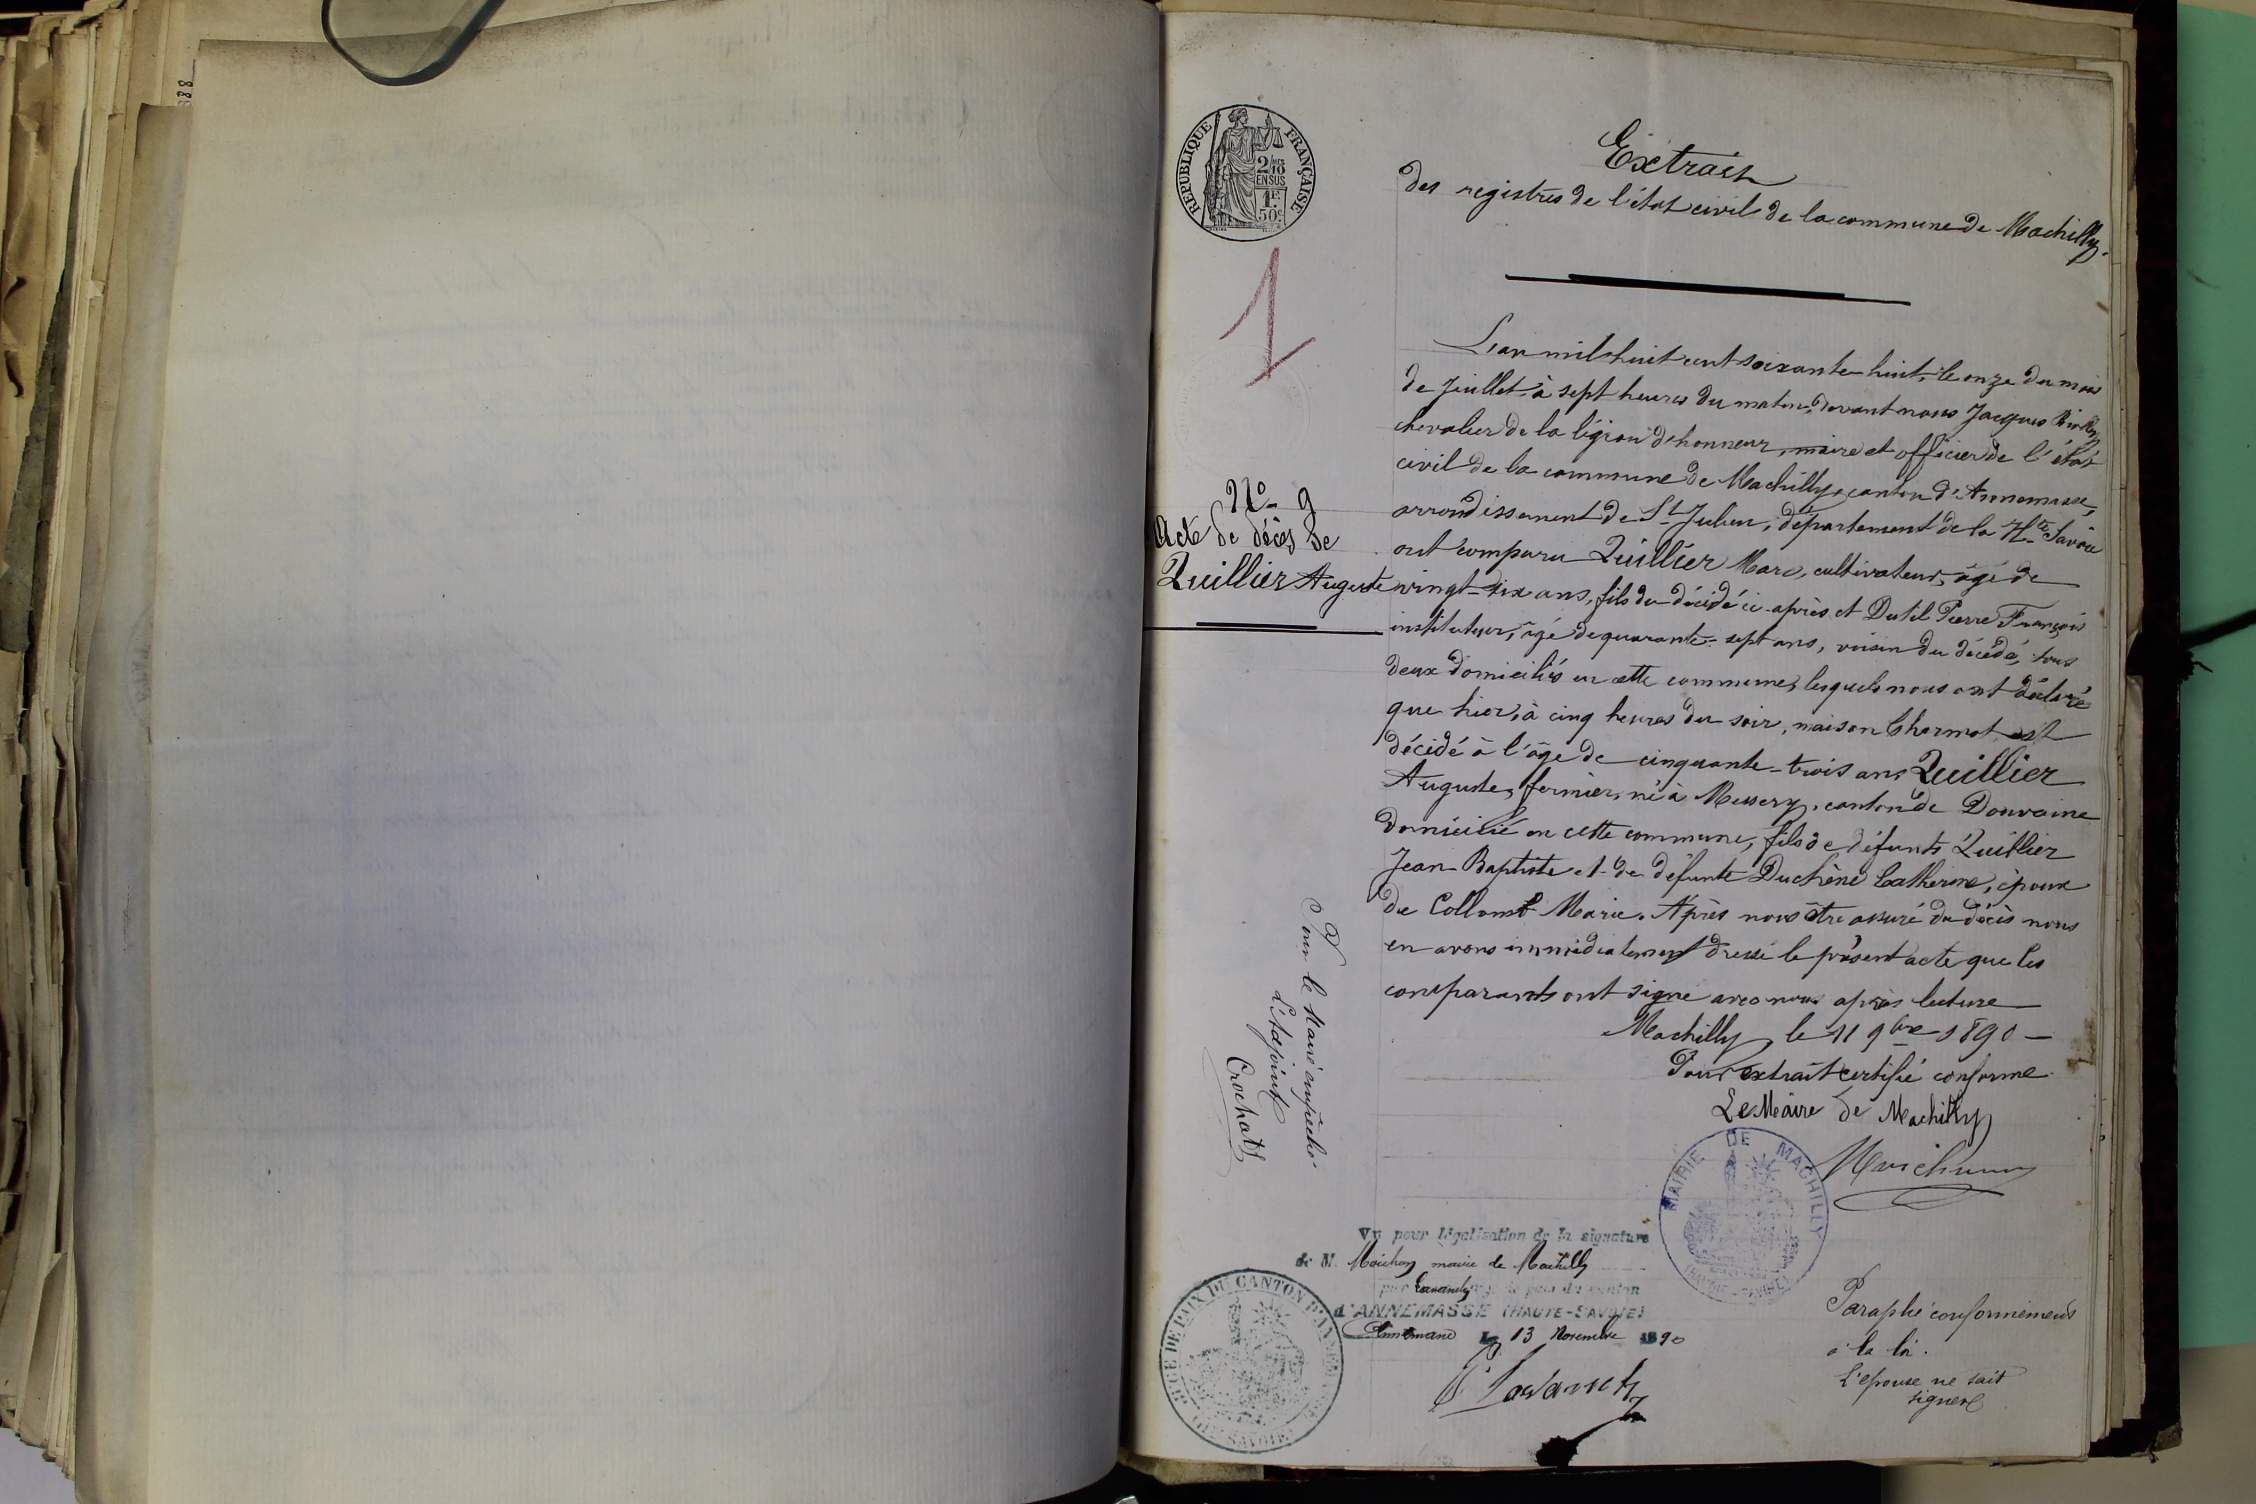 888
RÉPUBLIQUE FRANÇAISE
2/10 EN SUS
1F.
50c
Extrait
des registres de l'état civil de la commune de Machilly.
1
L'an mil huit cent soixante-huit, le onze du mois
de Juillet à sept heures du matin, devant nous Jacques
chevalier de la légion d'honneur, maire et officier de l'état
civil de la commune de Machilly, canton d'Annemasse,
arrondissement de St Julien, département de la Hte Savoie
ont comparu Quillier Marc, cultivateur, âgé de
vingt-six ans, fils du décédé ci-après et Dutil Pierre François
instituteur, âgé de quarante-sept ans, voisin du décédé, tous
deux domiciliés en cette commune, lesquels nous ont déclaré
que hier, à cinq heures du soir, maison Charmot est
décédé à l'âge de cinquante-trois ans Quillier
Auguste, fermier, né à Messery, canton de Douvaine
domicilié en cette commune, fils de défunts Quillier
Jean-Baptiste et de défunte Duchêne Catherine, époux
de Collomb Marie. Après nous être assuré du décès nous
en avons immédiatement dressé le présent acte que les
comparants ont signé avec nous après lecture
No 9
Acte de décès de
Quillier Auguste
Machilly le 11 9bre 1890
Pour extrait certifié conforme
Le Maire de Machilly
MAIRIE DE MACHILLY
(HAUTE-SAVOIE)
Pour le Maire empêché
L'Adjoint
Crochat
Vu pour légalisation de la signature
de M. Maichon maire de Machilly
par juge de paix du canton
d'ANNEMASSE (HAUTE-SAVOIE)
Annemasse le 13 Novembre 1890
JUSTICE DE PAIX DU CANTON D'ANNEMASSE
HTE SAVOIE
Paraphé conformément
à la loi.
L'épouse ne sait
signer